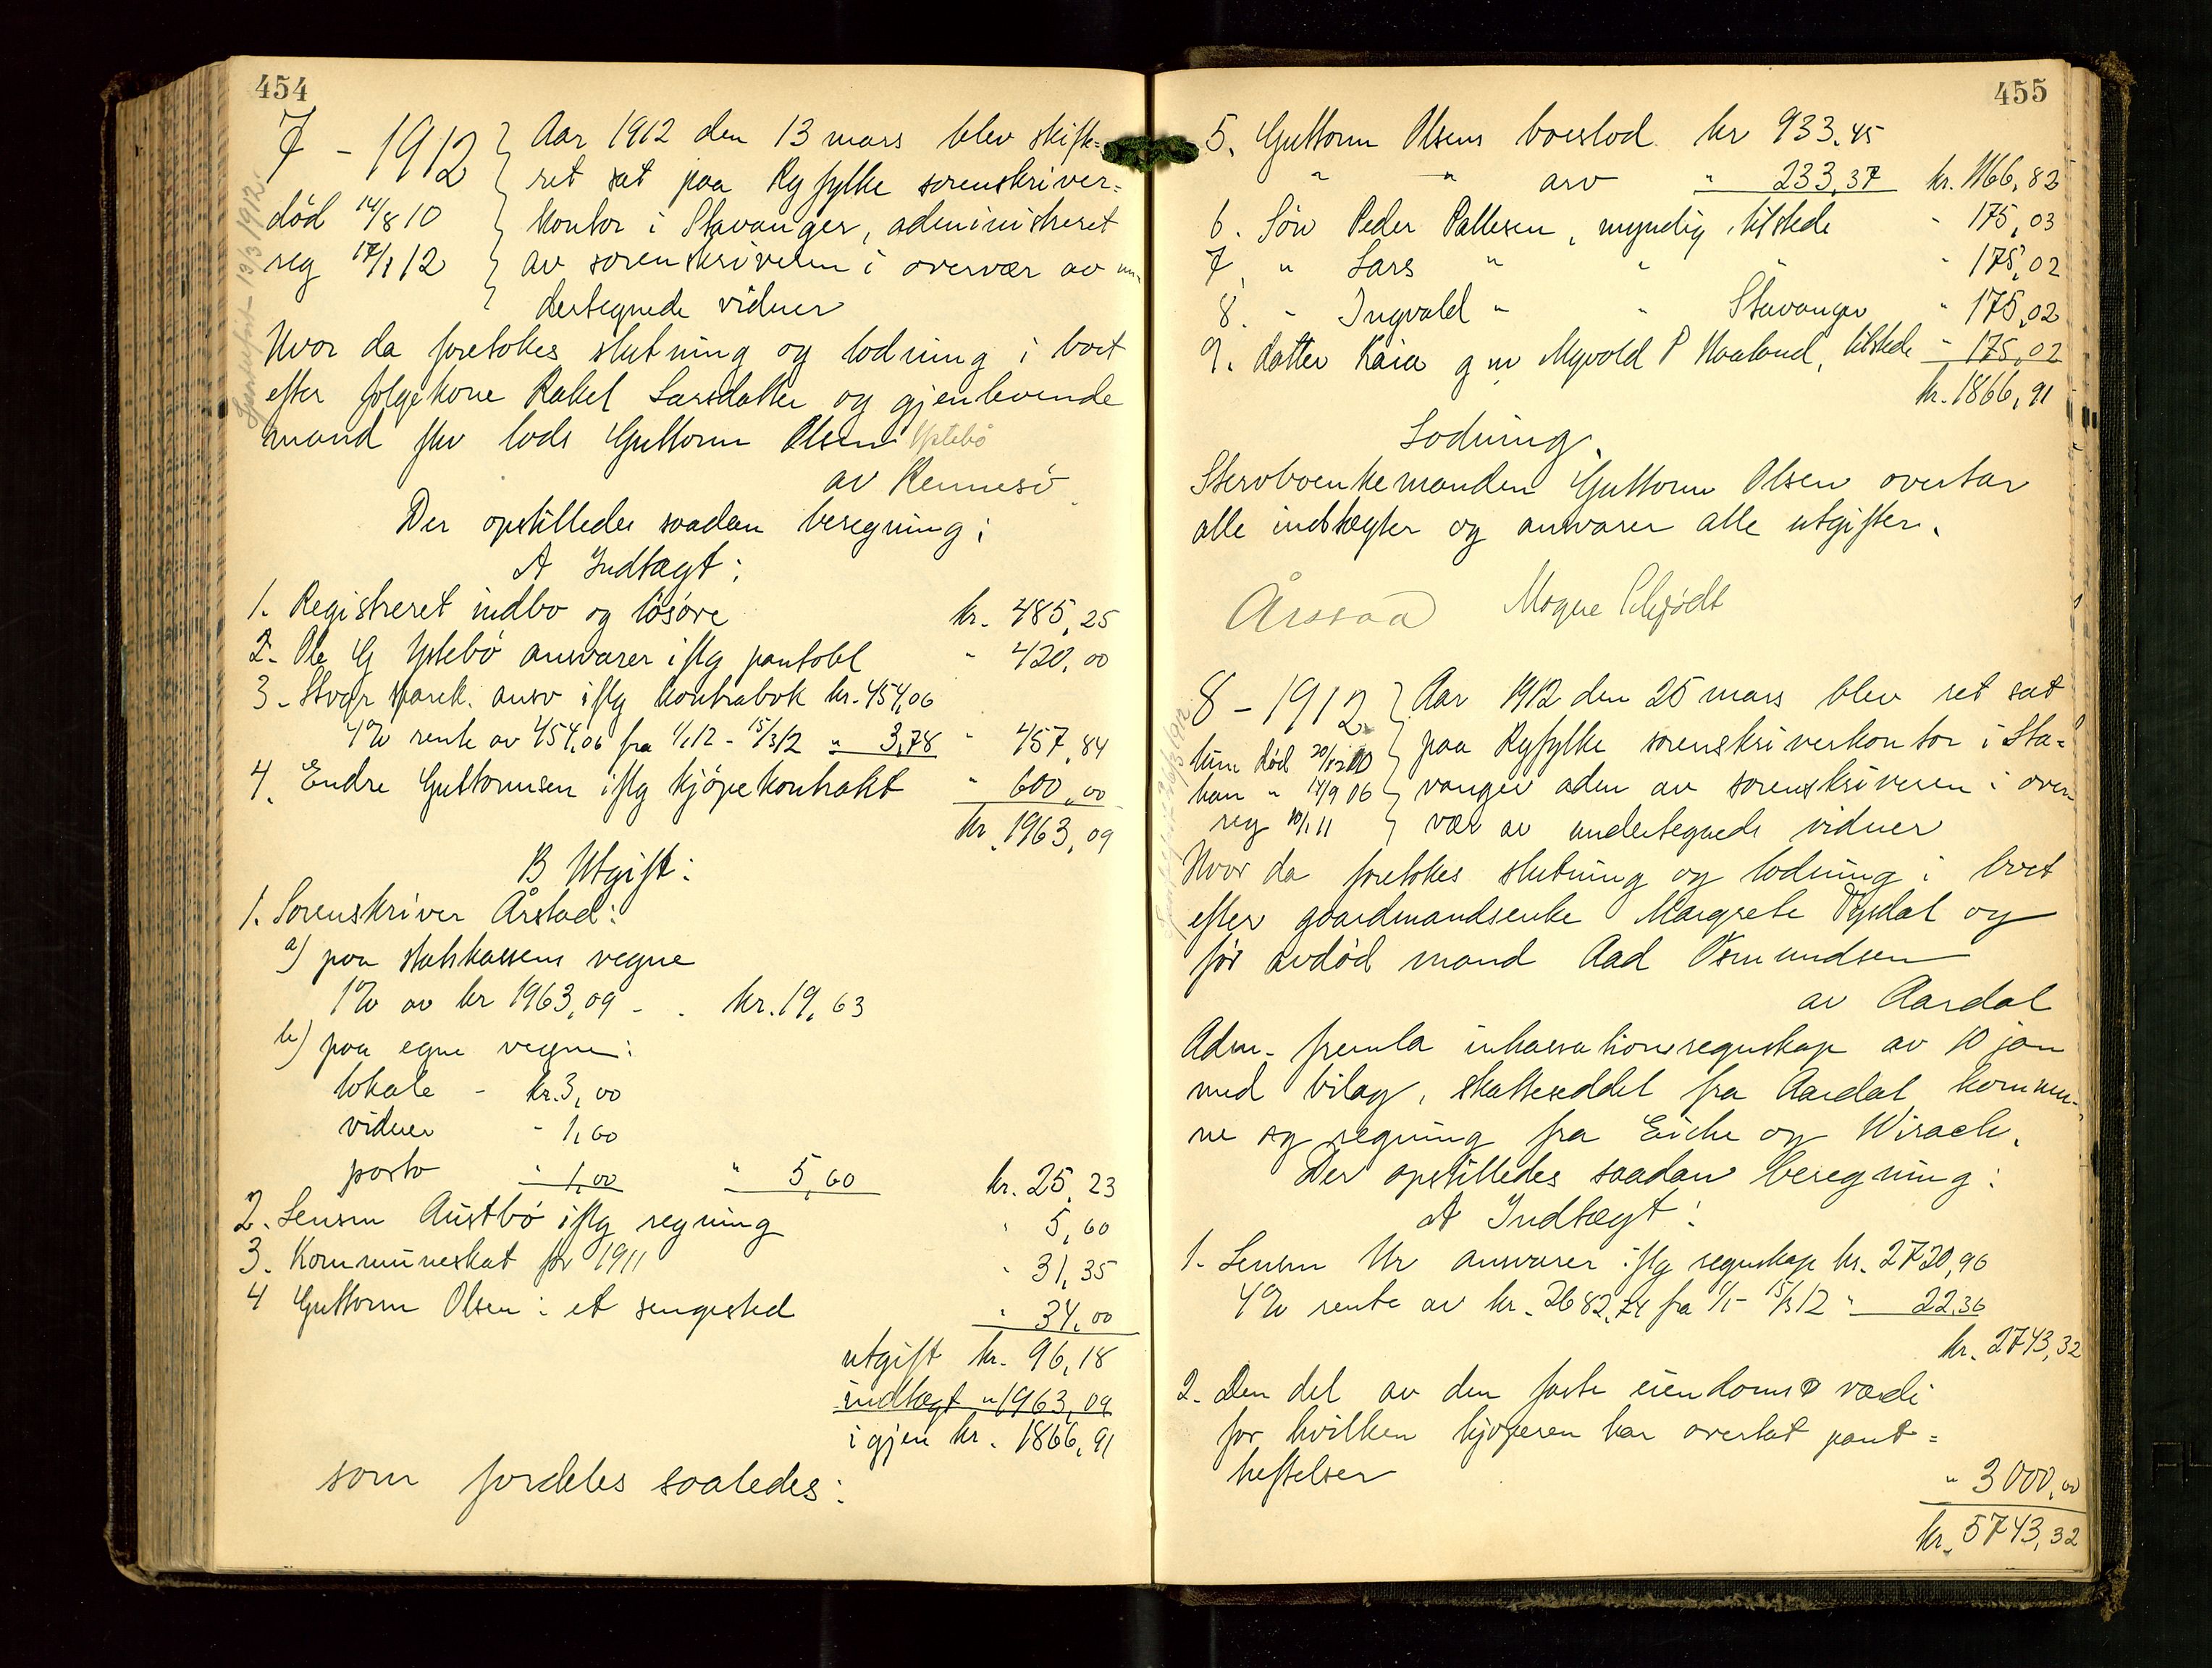 454
7 - 1912
død 14/8 10
reg 17/1 12
Aar 1912 den 13 mars blev skifte-
ret sat paa Ryfylke sorenskriver=
kontor i Stavanger, administreret
av sorenskriveren i overvær av un-
dertegnede vidner
Hvor da foretokes slutning og lodning i boet
efter folgekone Rakel Larsdatter og gjenlevende
mand fhv lods Guttorm Olsen Ystebö
av Rennesö
Der opstilledes saadan beregning:
A Indtægt:
1. Registreret indbo og lösöre kr. 485,25
2. Ole G Ystebö ansvarer iflg pantobl " 420,00
3. Stvgr spareb. ansv iflg kontrabok kr. 454,06
4% rente av 454,06 fra 1/1 12 - 15/3 12 " 3,78 " 457,84
4. Endre Guttormsen iflg kjöpekontrakt " 600,00
kr. 1963,09
B Utgift:
1. Sorenskriver Årstad:
a) paa statskassens vegne
1% av kr 1963,09 - . kr. 19,63
b) paa egne vegne:
lokale - kr. 3,00
vidner - 1,60
porto " 1,00 " 5,60 kr. 25,23
2. Lensm Austbö iflg regning " 5,60
3. Kommuneskat for 1911 " 31,35
4 Guttorm Olsen: et sengested " 34,00
utgift kr. 96,18
indtægt " 1963,09
igjen kr. 1866,91
som fordeles saaledes:
455
5. Guttorm Olsens boeslod kr 933.45
" " arv " 233,37 kr. 1166,82
6. Sön Peder Pallesen, myndig, tilstede " 175,03
7. " Lars " " " " 175,02
8. " Ingvald " " Stavanger " 175,02
9. datter Kaia g m Myvold P Haaland, tilstede " 175,02
kr. 1866,91
Lodning.
Stervboenkemanden Guttorm Olsen overtar
alle indtægter og ansvarer alle utgifter.
Mogne Schjödt
8 - 1912
hun död 20/12 10
han " 14/9 06
reg 10/1 11
Aar 1912 den 25 mars blev ret sat
paa Ryfylke sorenskriverkontor i Sta-
vanger adm av sorenskriveren i over-
vær av undertegnede vidner
Hvor da foretokes slutning og lodning i boet
efter gaardmandsenke Margrete Tysdal og
før avdød mand Aad Osmundsen
av Aardal
Adm. fremla inkassationsregnskap av 10 jan
med bilag, skatteseddel fra Aardal kommu-
ne og regning fra Eiche og Wisach.
Der opstilledes saadan beregning:
A Indtægt:
1. Lensm Ur ansvarer iflg regnskap kr. 2720,96
4% rente av kr. 2682,74 fra 1/1 - 15/3 12 " 22,36
kr. 2743,32
2. Den del av den faste eiendoms værdi
for hvilken kjøperen har overtat pant=
heftelser
" 3000,00
kr. 5743,32